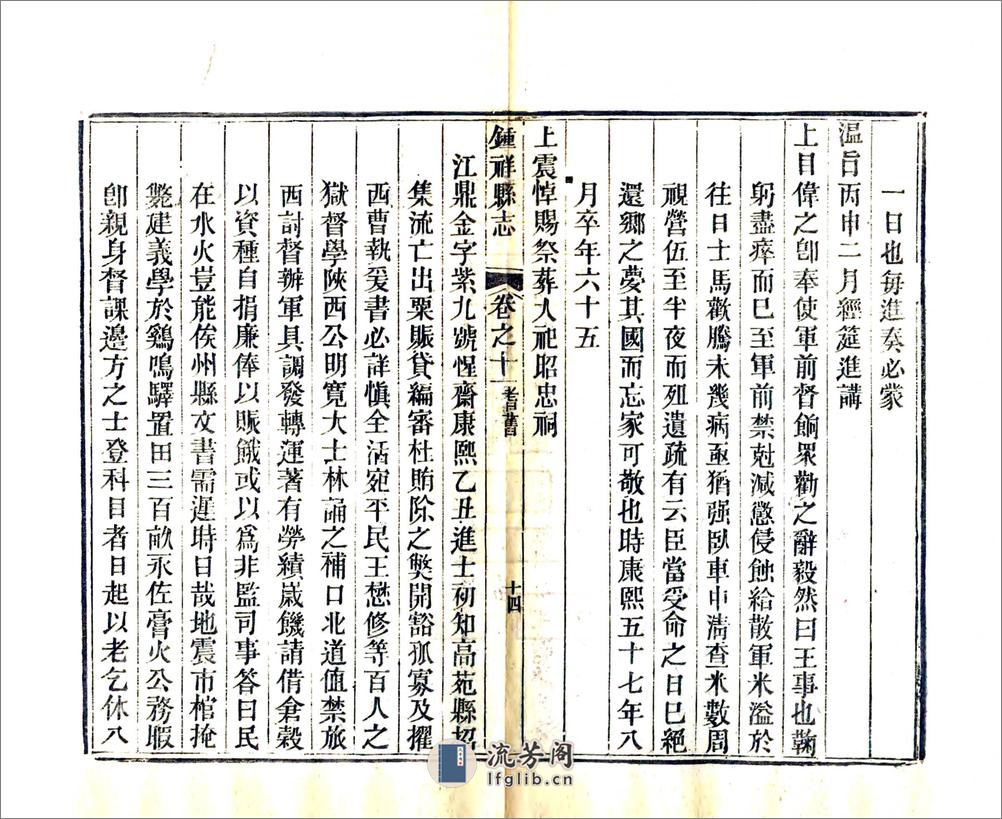 一日也每進奏必蒙
溫旨丙申二月經筵進講
上目偉之卽奉使軍前督餉眾勸之辭毅然曰王事也鞠
躬盡瘁而已至軍前禁尅減懲侵蝕給散軍米溢於
往日士馬歡騰未幾病亟猶强臥車中淸查米數周
視營伍至半夜而殂遺疏有云臣當受命之日已絕
還鄉之夢其國而忘家可敬也時康熙五十七年八
月卒年六十五
上震悼賜祭葬入祀昭忠祠
鍾祥縣志 卷之十 耆舊 十四
江鼎金字紫九號惺齋康熙乙丑進士初知高苑縣招
集流亡出粟賑貸編審杜賄除之獘開豁孤寡及擢
西曹執爰書必詳愼全活宛平民王懋修等百人之
獄督學陝西公明寬大士林誦之補口北道値禁旅
西討督辦軍具調發轉運著有勞績歲饑請借倉穀
以資種自捐廉俸以賑餓或以爲非監司事答曰民
在水火豈能俟州縣文書需遲時日哉地震市棺掩
斃建義學於鷄鳴驛置田三百畝永佐膏火公務暇
卽親身督課邊方之士登科目者日起以老乞休八
流芳阁
lfglib.cn